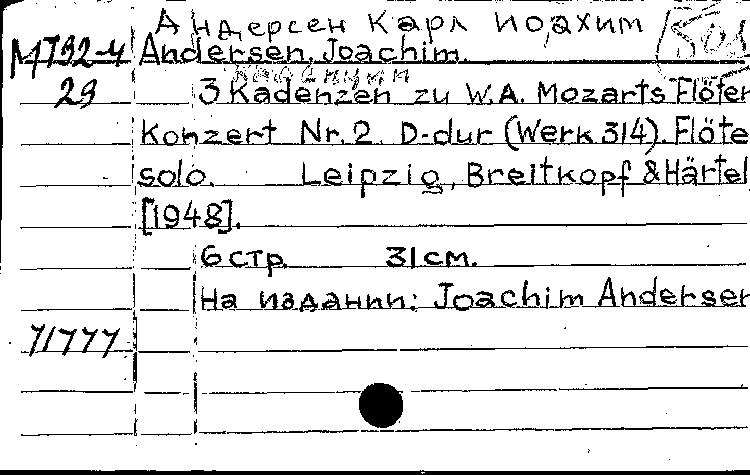 Андерсен Карл Иоахим
МТ92-4 Andersen, Joachim.
каденции
29 3 Kadenzen zu W.A. Mozarts Flöten
Konzert Nr. 2. D-dur (Werk 314). Flöte
solo. Leipzig, Breitkopf & Härtel
[1948].
6 стр. 31 см.
На издании: Joachim Andersen
71777